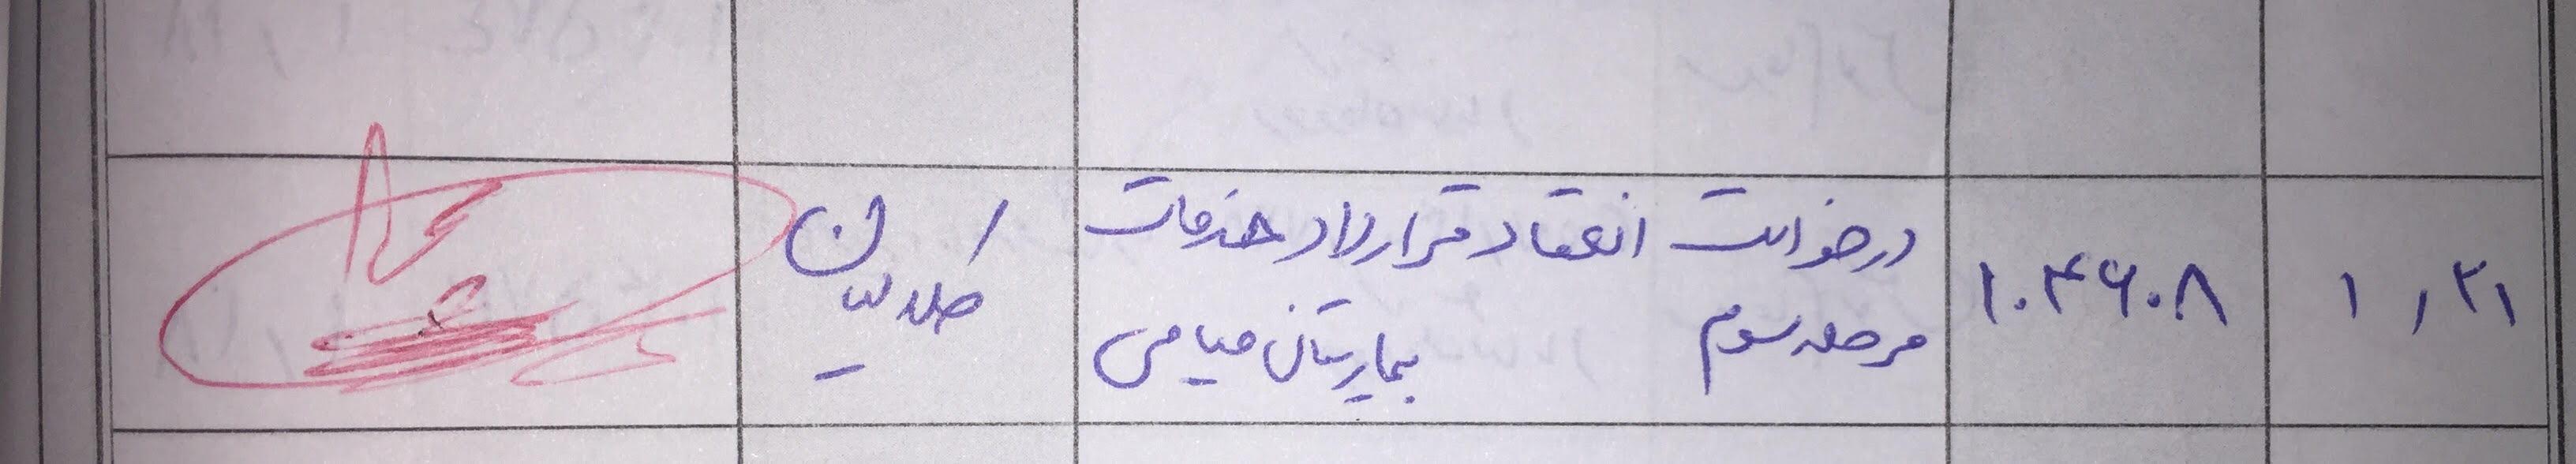 ۱٫۲۱
۱۰۴۶۰۸
درخواست انعقاد قرارداد خدمات
مرحله سوم بیمارستان میامی